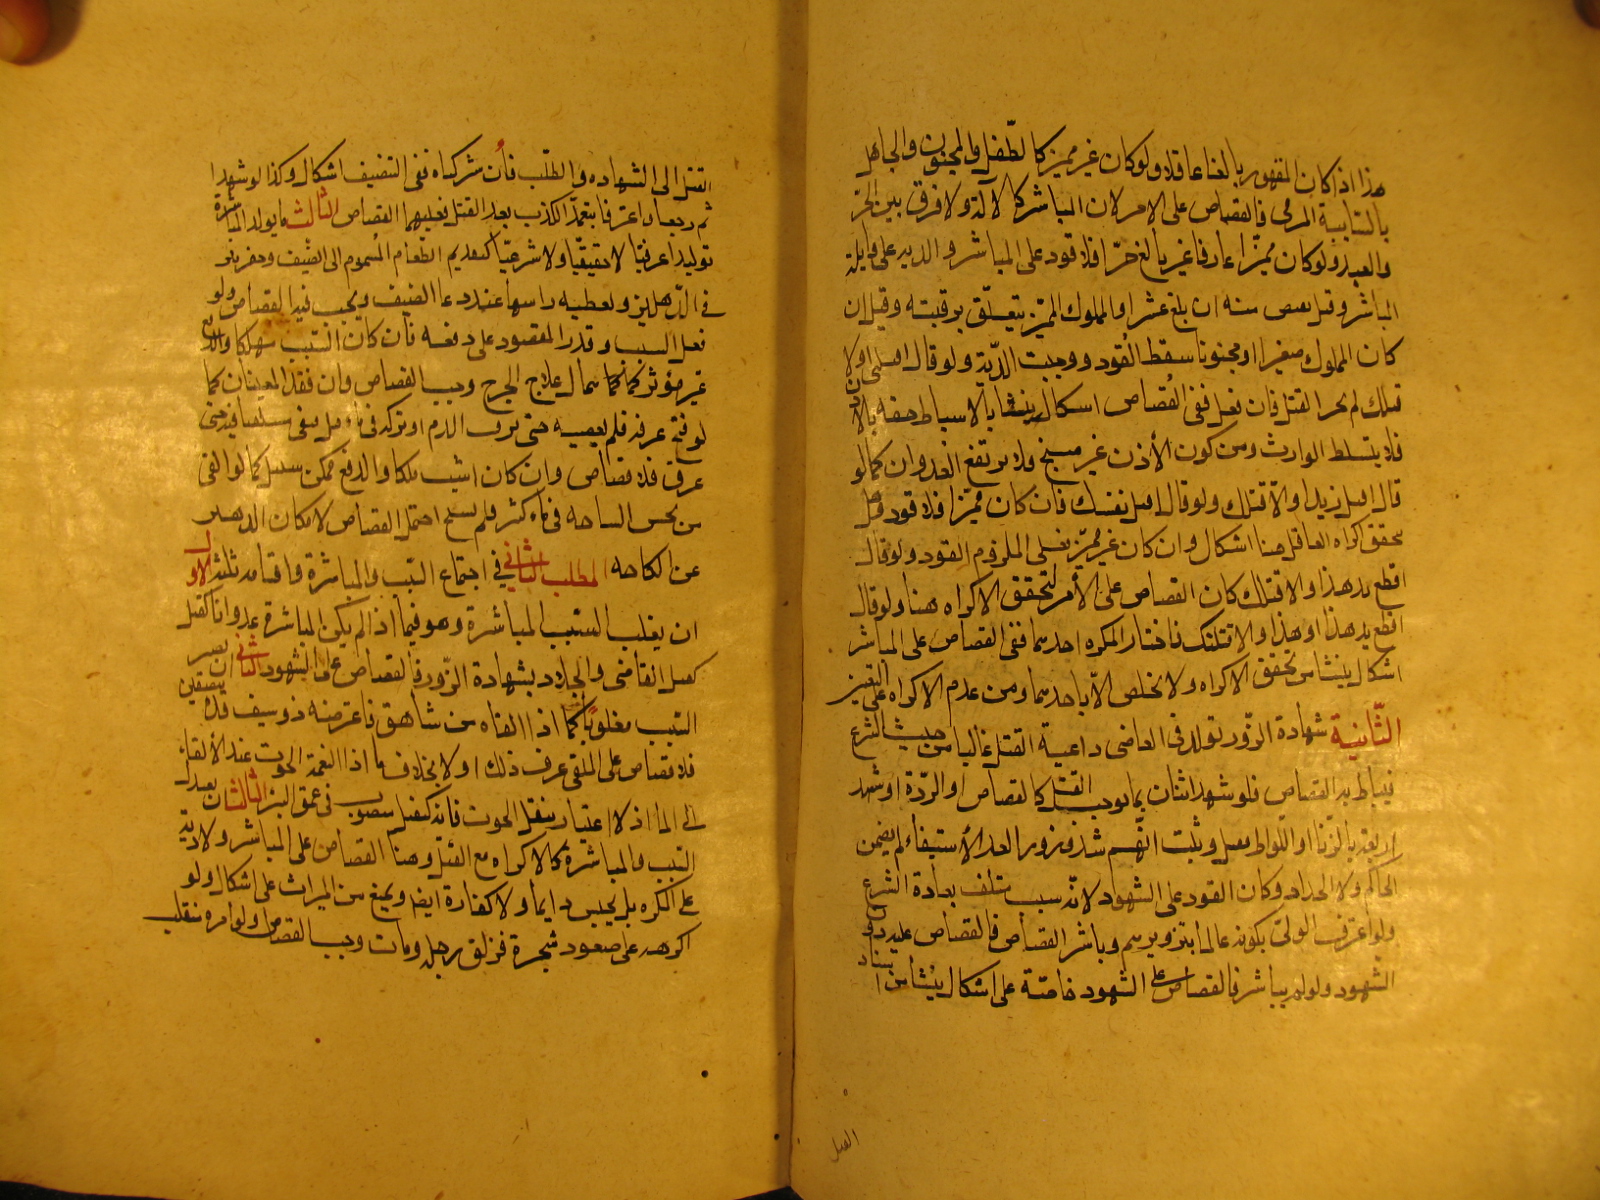 هذا اذا كان المقهور بالغا عاقلا ولو كان غير مميز كالطفل والمجنون والجاهل
بانسانية المرمى فالقصاص على الامر لان المباشر كالالة ولا فرق بين الحر
والعبد ولو كان مميزا عارفا غير بالغ حرا فلا قود على المباشر والدية على عاقلة
المباشر وقيل يقتص منه ان بلغ عشرا والمملوك المميز يتعلق برقبته وقيل ان
كان المملوك صغيرا او مجنونا سقط القود ووجبت الدية ولو قال اقتلنى والا
قتلتك لم يجز القتل فان فعل ففى القصاص اشكال ينشا بالاسباط حقه بالاذن
فلا يتسلط الوارث ومن كون الأذن غير مبيح فلا يرتفع العدوان كما لو
قال اقتل زيدا والا قتلتك ولو قال اقتل نفسك فان كان مميزا فلا قود وهل
يتحقق اكراه العاقل هنا اشكال وان كان غير مميز فعلى الملزوم القود ولو قال
اقطع يد هذا والا قتلتك كان القصاص على الأمر لتحقق الاكراه هنا ولو قال
اقطع يد هذا او هذا والا قتلتك فاختار المكره احدهما ففى القصاص على المباشر
اشكال ينشا من تحقق الاكراه ولا تخلص الا باحدهما ومن عدم الاكراه على التعيين
الثانية شهادة الزور تولد فى القاضى داعية القتل غالبا من حيث الشرع
فيناط به القصاص فلو شهد اثنان بما يوجب القتل كالقصاص او الردة او شهد
اربعة بالزنا او اللواط فقتل وثبت انهم شهدوا زورا بعد الأستيفاء لم يضمن
الحاكم ولا الحداد وكان القود على الشهود لانه سبب متلف بعادة الشرع
ولو اعترف الولى بكونه عالما بتزويرهم وباشر القصاص فالقصاص عليه دون
الشهود ولو لم يباشر فالقصاص على الشهود خاصة على اشكال ينشا من استناد
القتل
القتل الى الشهادة والطلب فان شركناه ففى التنصيف اشكال وكذا لو شهدا
ثم رجعا واعترفا بتعمد الكذب بعد القتل فعليهما القصاص الثالث ما يولد المباشرة
توليدا عرفيا لا حقيقيا ولا شرعيا كتقديم الطعام المسموم الى الضيف وحفر بئر
فى الدهليز وتغطية راسها عند دعاء الضيف ويجب فيه القصاص ولو
فعل السبب وقدر المقصود على دفعه فان كان السبب مهلكا والدفع
غير موثوق به كاهمال علاج الجرح وجب القصاص وان فقد المعنيان كما
لو فتح عرقه فلم يعصبه حتى نزف الدم او تركه فى ماء قليل فبقى مستلقيا فيه حتى
غرق فلا قصاص وان كان السبب مهلكا والدفع ممكن سهل كما لو القى
من يحسن السباحة فى ماء كثير فلم يسبح احتمل القصاص لامكان الدهش
عن السباحة المطلب الثانى فى اجتماع السبب والمباشرة واقسامه ثلثة الاول
ان يغلب السبب المباشرة وهو فيما اذا لم يكن المباشرة عدوانا كقتل
كقتل القاضى والجلاد بشهادة الزور فالقصاص على الشهود الثانى ان يصير
السبب مغلوبا كما اذا القاه من شاهق فاعترضه ذو سيف فقده بنصفين
فلا قصاص على الملقى عرف ذلك او لا بخلاف ما اذا التقمة الحوت عند الألقاء
الى الماء اذ لا اعتبار بفعل الحوت فانه كنصل منصوب فى عمق البئر الثالث ان يعدل
السبب والمباشرة كالاكراه مع القتل وهنا القصاص على المباشر ولا دية
على المكره بل يحبس دايما ولا كفارة ايضا ويمنع من الميراث على اشكال ولو
اكرهه على صعود شجرة فزلق رجله ومات وجب القصاص ولو امره متغلب